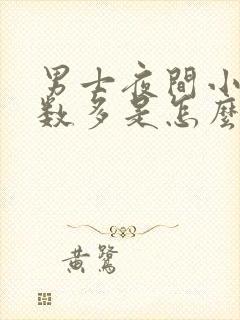 男士夜間小
数多是怎麼
黃鷺